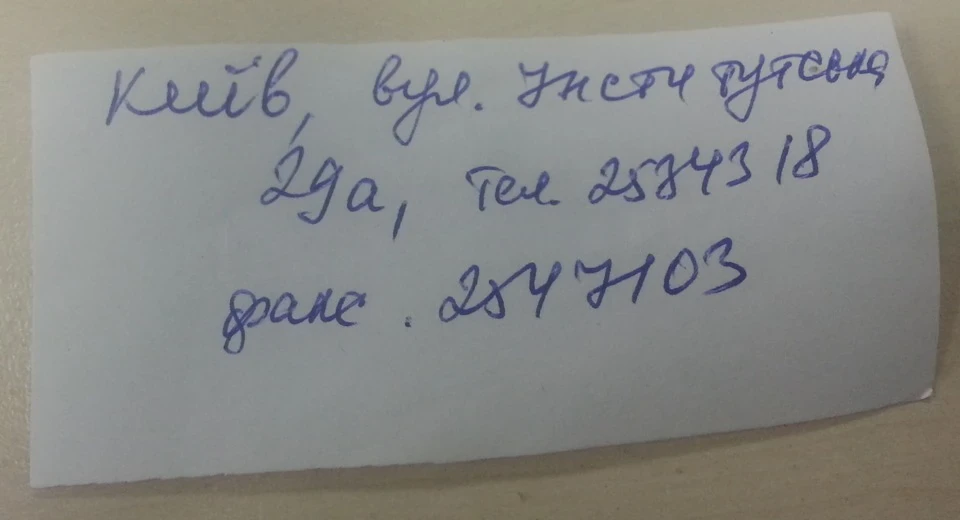 Київ, вул. Інститутська
29а, тел. 2534318
факс. 2547103